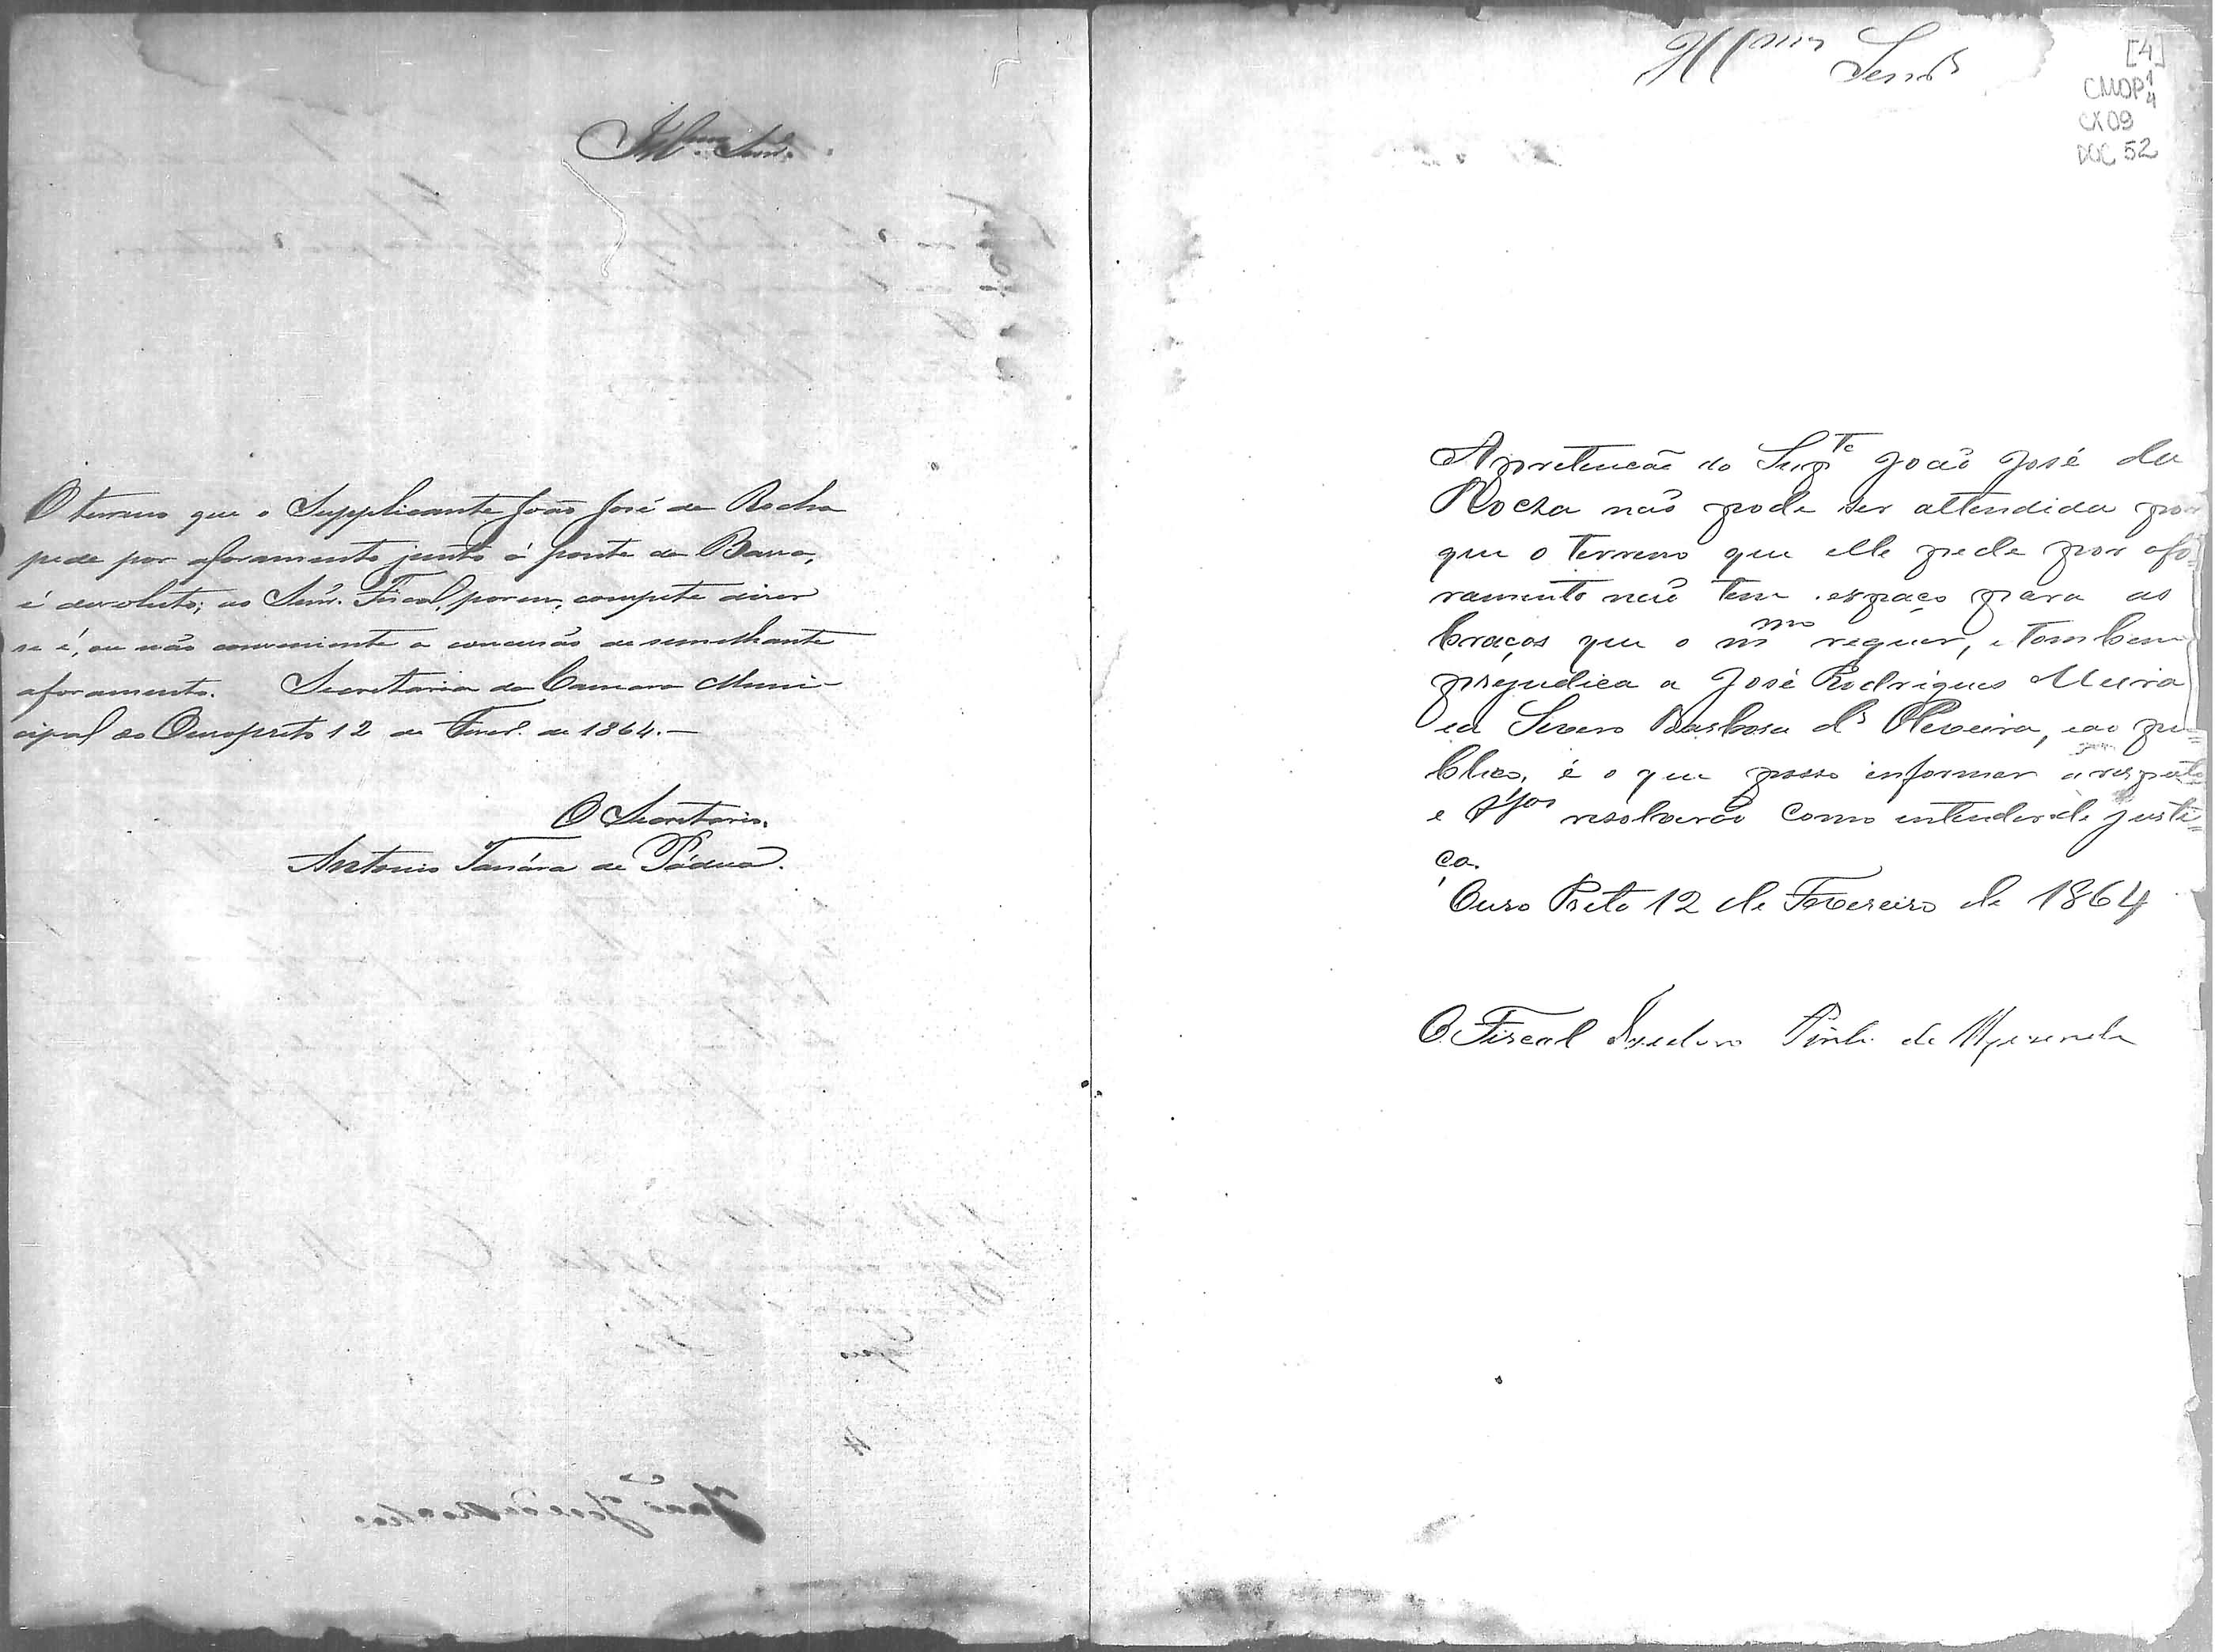 Illmos Senrs.
O terreno que o Supplicante João José da Rocha
pede por aforamento junto á ponte da Barra,
é devoluto; ao Senr. Fiscal, porem, compete dizer
se é, ou não conveniente a concessão de semelhante
aforamento. Secretaria da Camara Muni-
cipal do Ouropreto 12 de Fever. de 1864.—
O Secretario.
Antonio de Pádua.
Illmos Senrs
[4]
CMOP 1/4
CX 09
DOC 52
A pretencão do Supte João José da
Rocha não pode ser attendida por
que o terreno que elle pede por afo=
ramento não tem espaço para as
braças que o mmo requer, e tambem
prejudica a José Rodrigues Meira
ea Severo Barbosa d' Oliveira, eao pu=
blico, é o que posso informar arespeito
e VSas resolverão como entender de justi=
ça.
Ouro Preto 12 de Fevereiro de 1864
O Fiscal Pinto de
João José da Rocha